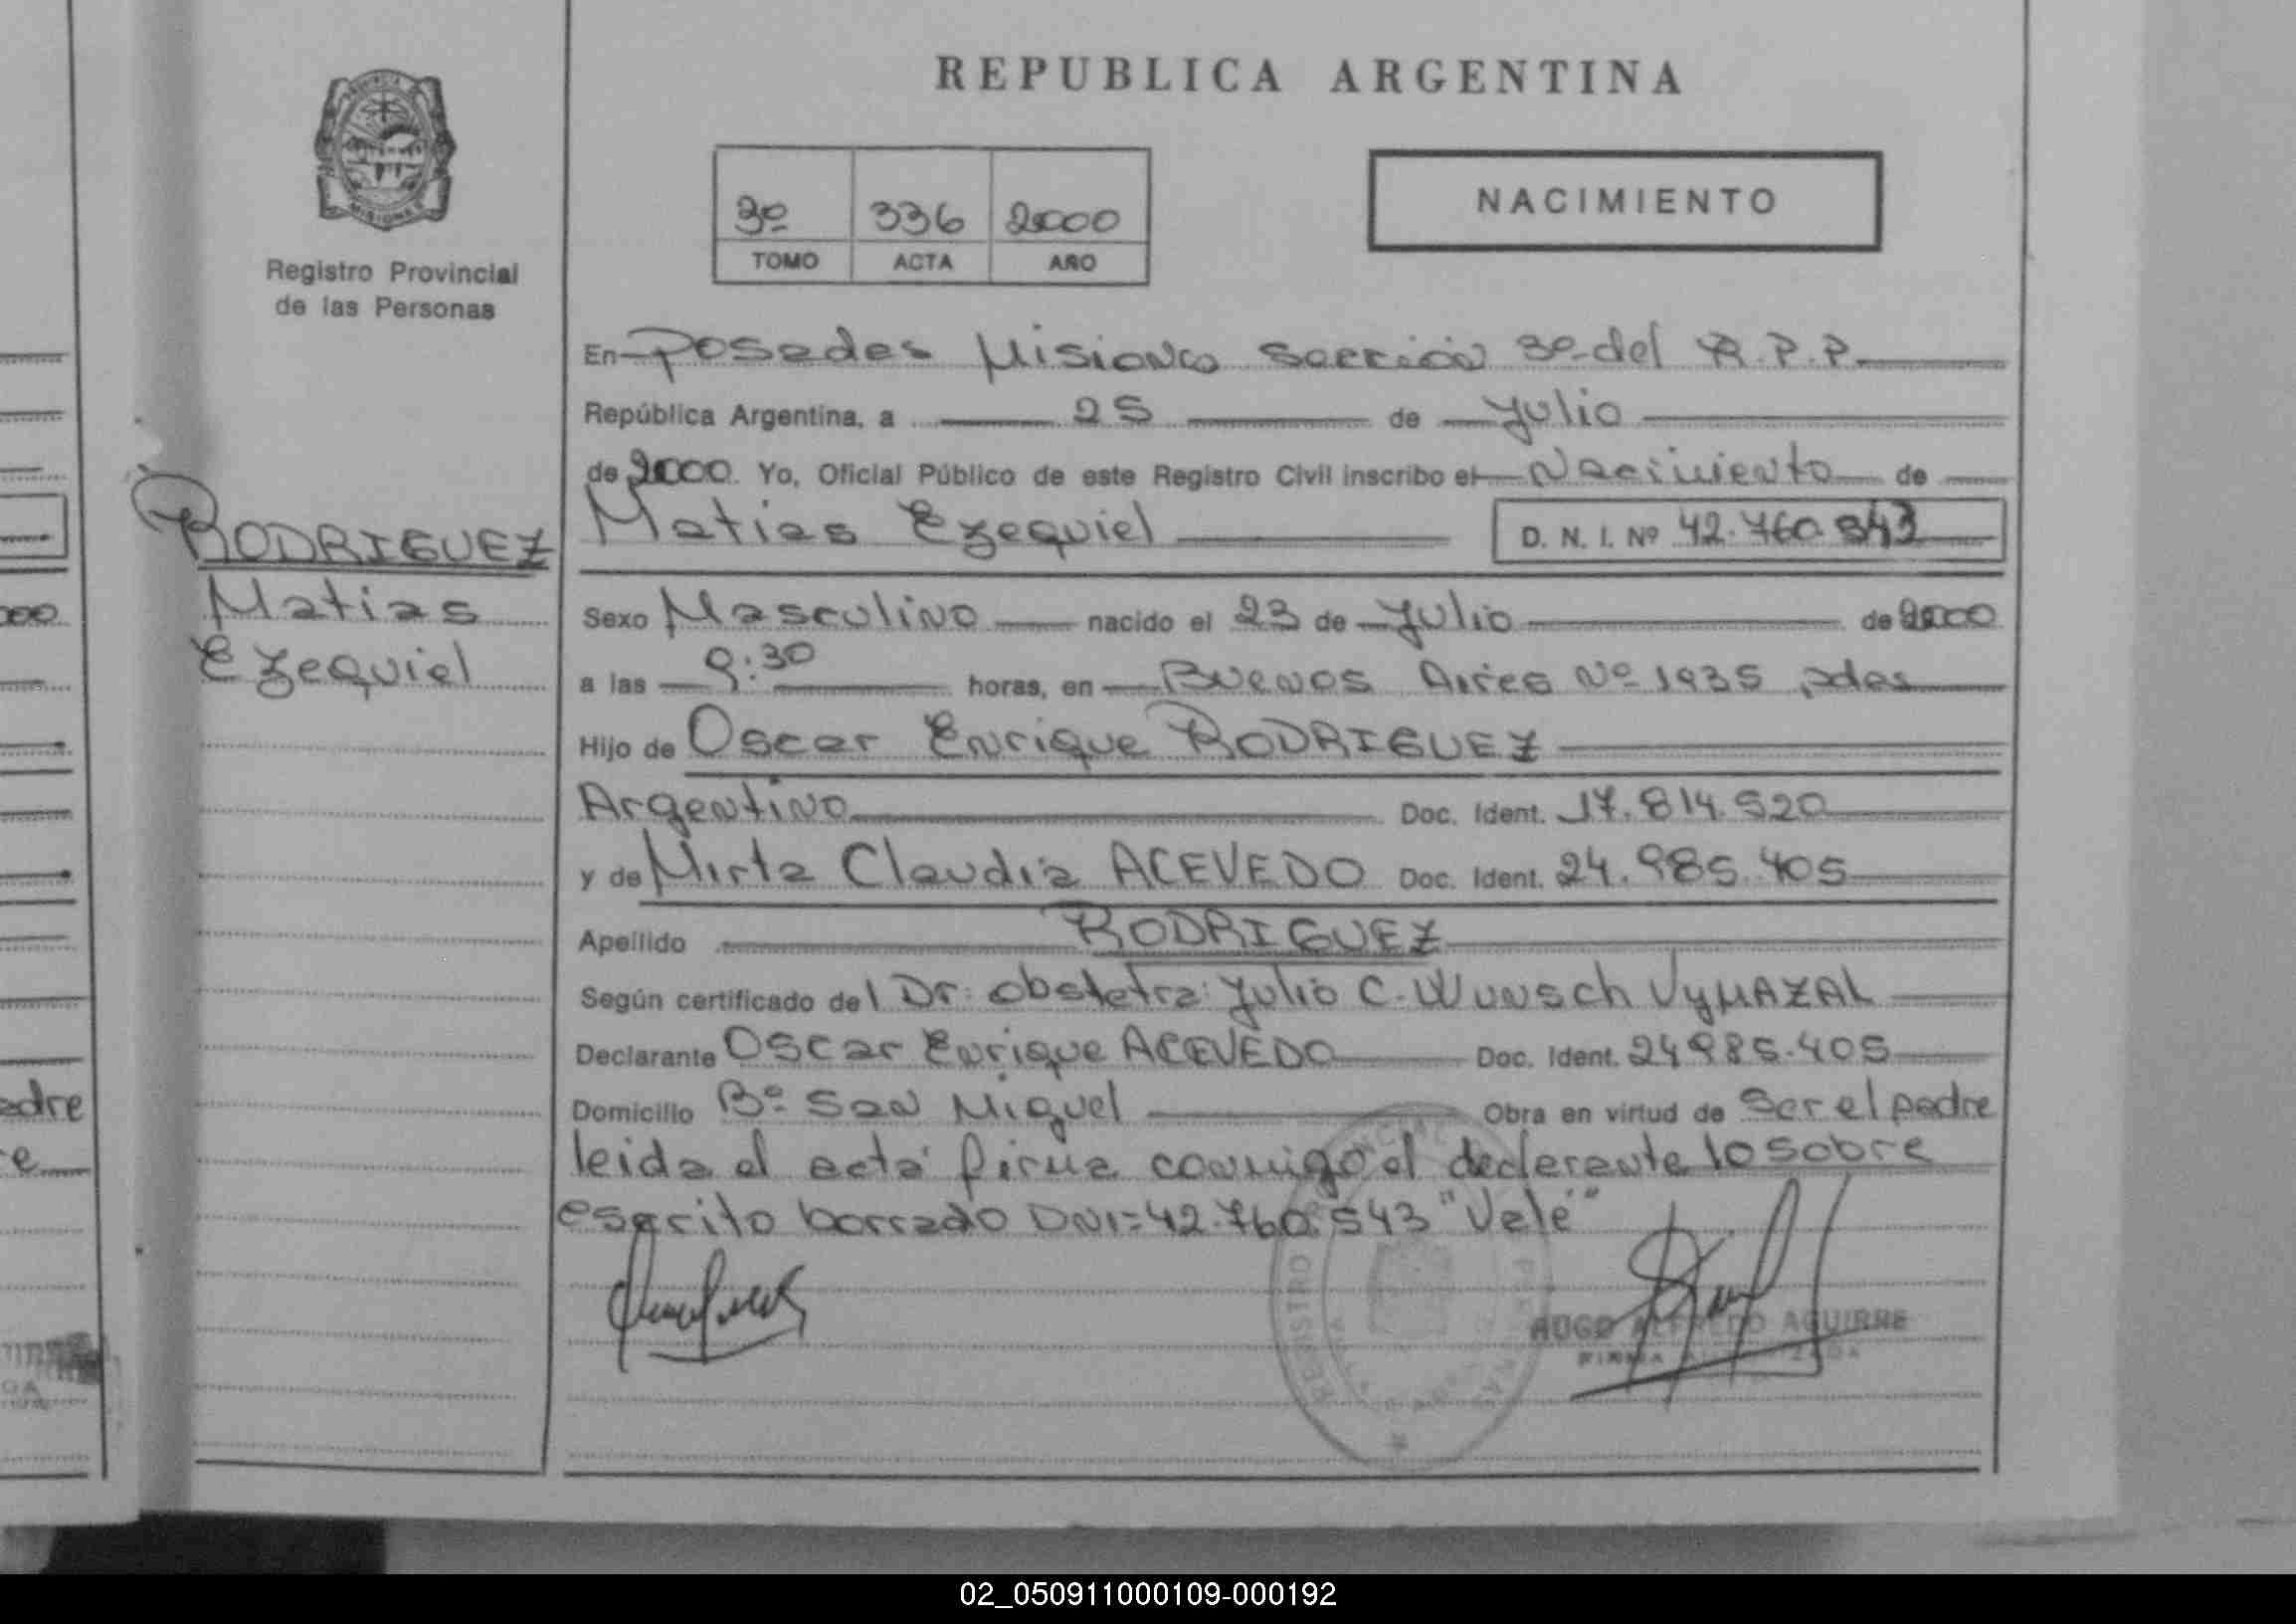 REPUBLICA ARGENTINA
MISIONES
Registro Provincial
de las Personas
3º 336 2000
TOMO ACTA AÑO
NACIMIENTO
En Posadas Misiones sección 3º del R.P.P.
República Argentina, a 25 de Julio
de 2000 Yo, Oficial Público de este Registro Civil inscribo el Nacimiento de
RODRIGUEZ
Matias
Ezequiel
Matias Ezequiel D. N. I. Nº 42.760.543
Sexo Masculino nacido el 23 de Julio de 2000
a las 9:30 horas, en Buenos Aires Nº 1935 pdas
Hijo de Oscar Enrique RODRIGUEZ
Argentino Doc. Ident. 17.814.520
y de Mirta Claudia ACEVEDO Doc. Ident. 24.985.405
Apellido RODRIGUEZ
Según certificado del Dr. obstetra: Julio C. Wunsch VyMAZAL
Declarante Oscar Enrique ACEVEDO Doc. Ident. 24985.405
Domicilio Bº San Miguel Obra en virtud de Ser el padre
leida el acta firma conmigo el declarante lo sobre
escrito borrado DNI=42.760.543 "Vale"
REGISTRO
HUGO ALFREDO AGUIRRE
FIRMA
02_050911000109-000192